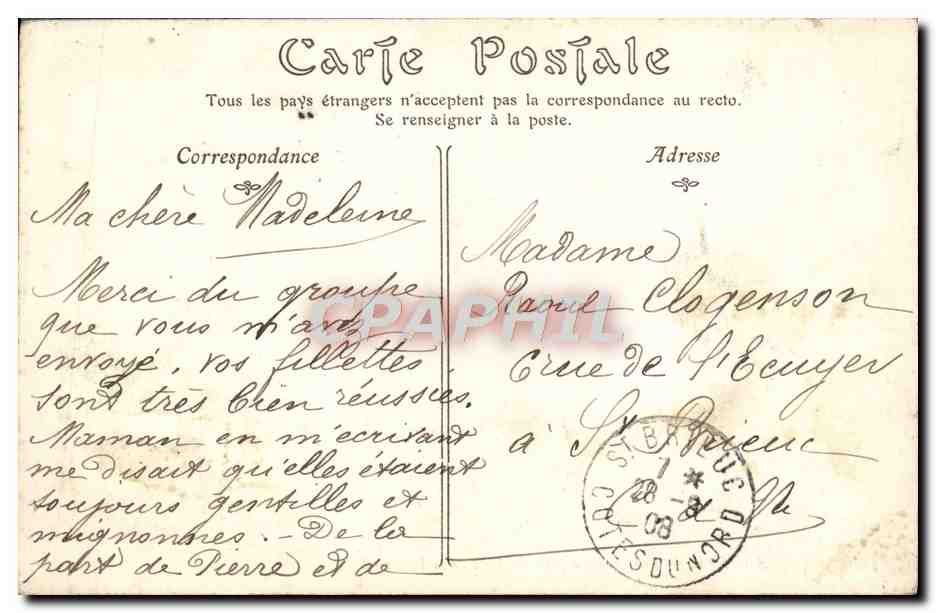 Carte Postale
Tous les pays étrangers n'acceptent pas la correspondance au recto.
Se renseigner à la poste.
Correspondance
Ma chère Madeleine
Merci du groupe
que vous m'avez
envoyé, vos fillettes
sont très bien réussies.
Maman en m'écrivant
me disait qu'elles étaient
toujours gentilles et
mignonnes. - De la
part de Pierre et de
Adresse
Madame
Raoul Clogenson
rue de l'Ecuyer
à St Brieuc
CPAPHIL
ST BRIEUC
28 -8
08
COTES DU NORD